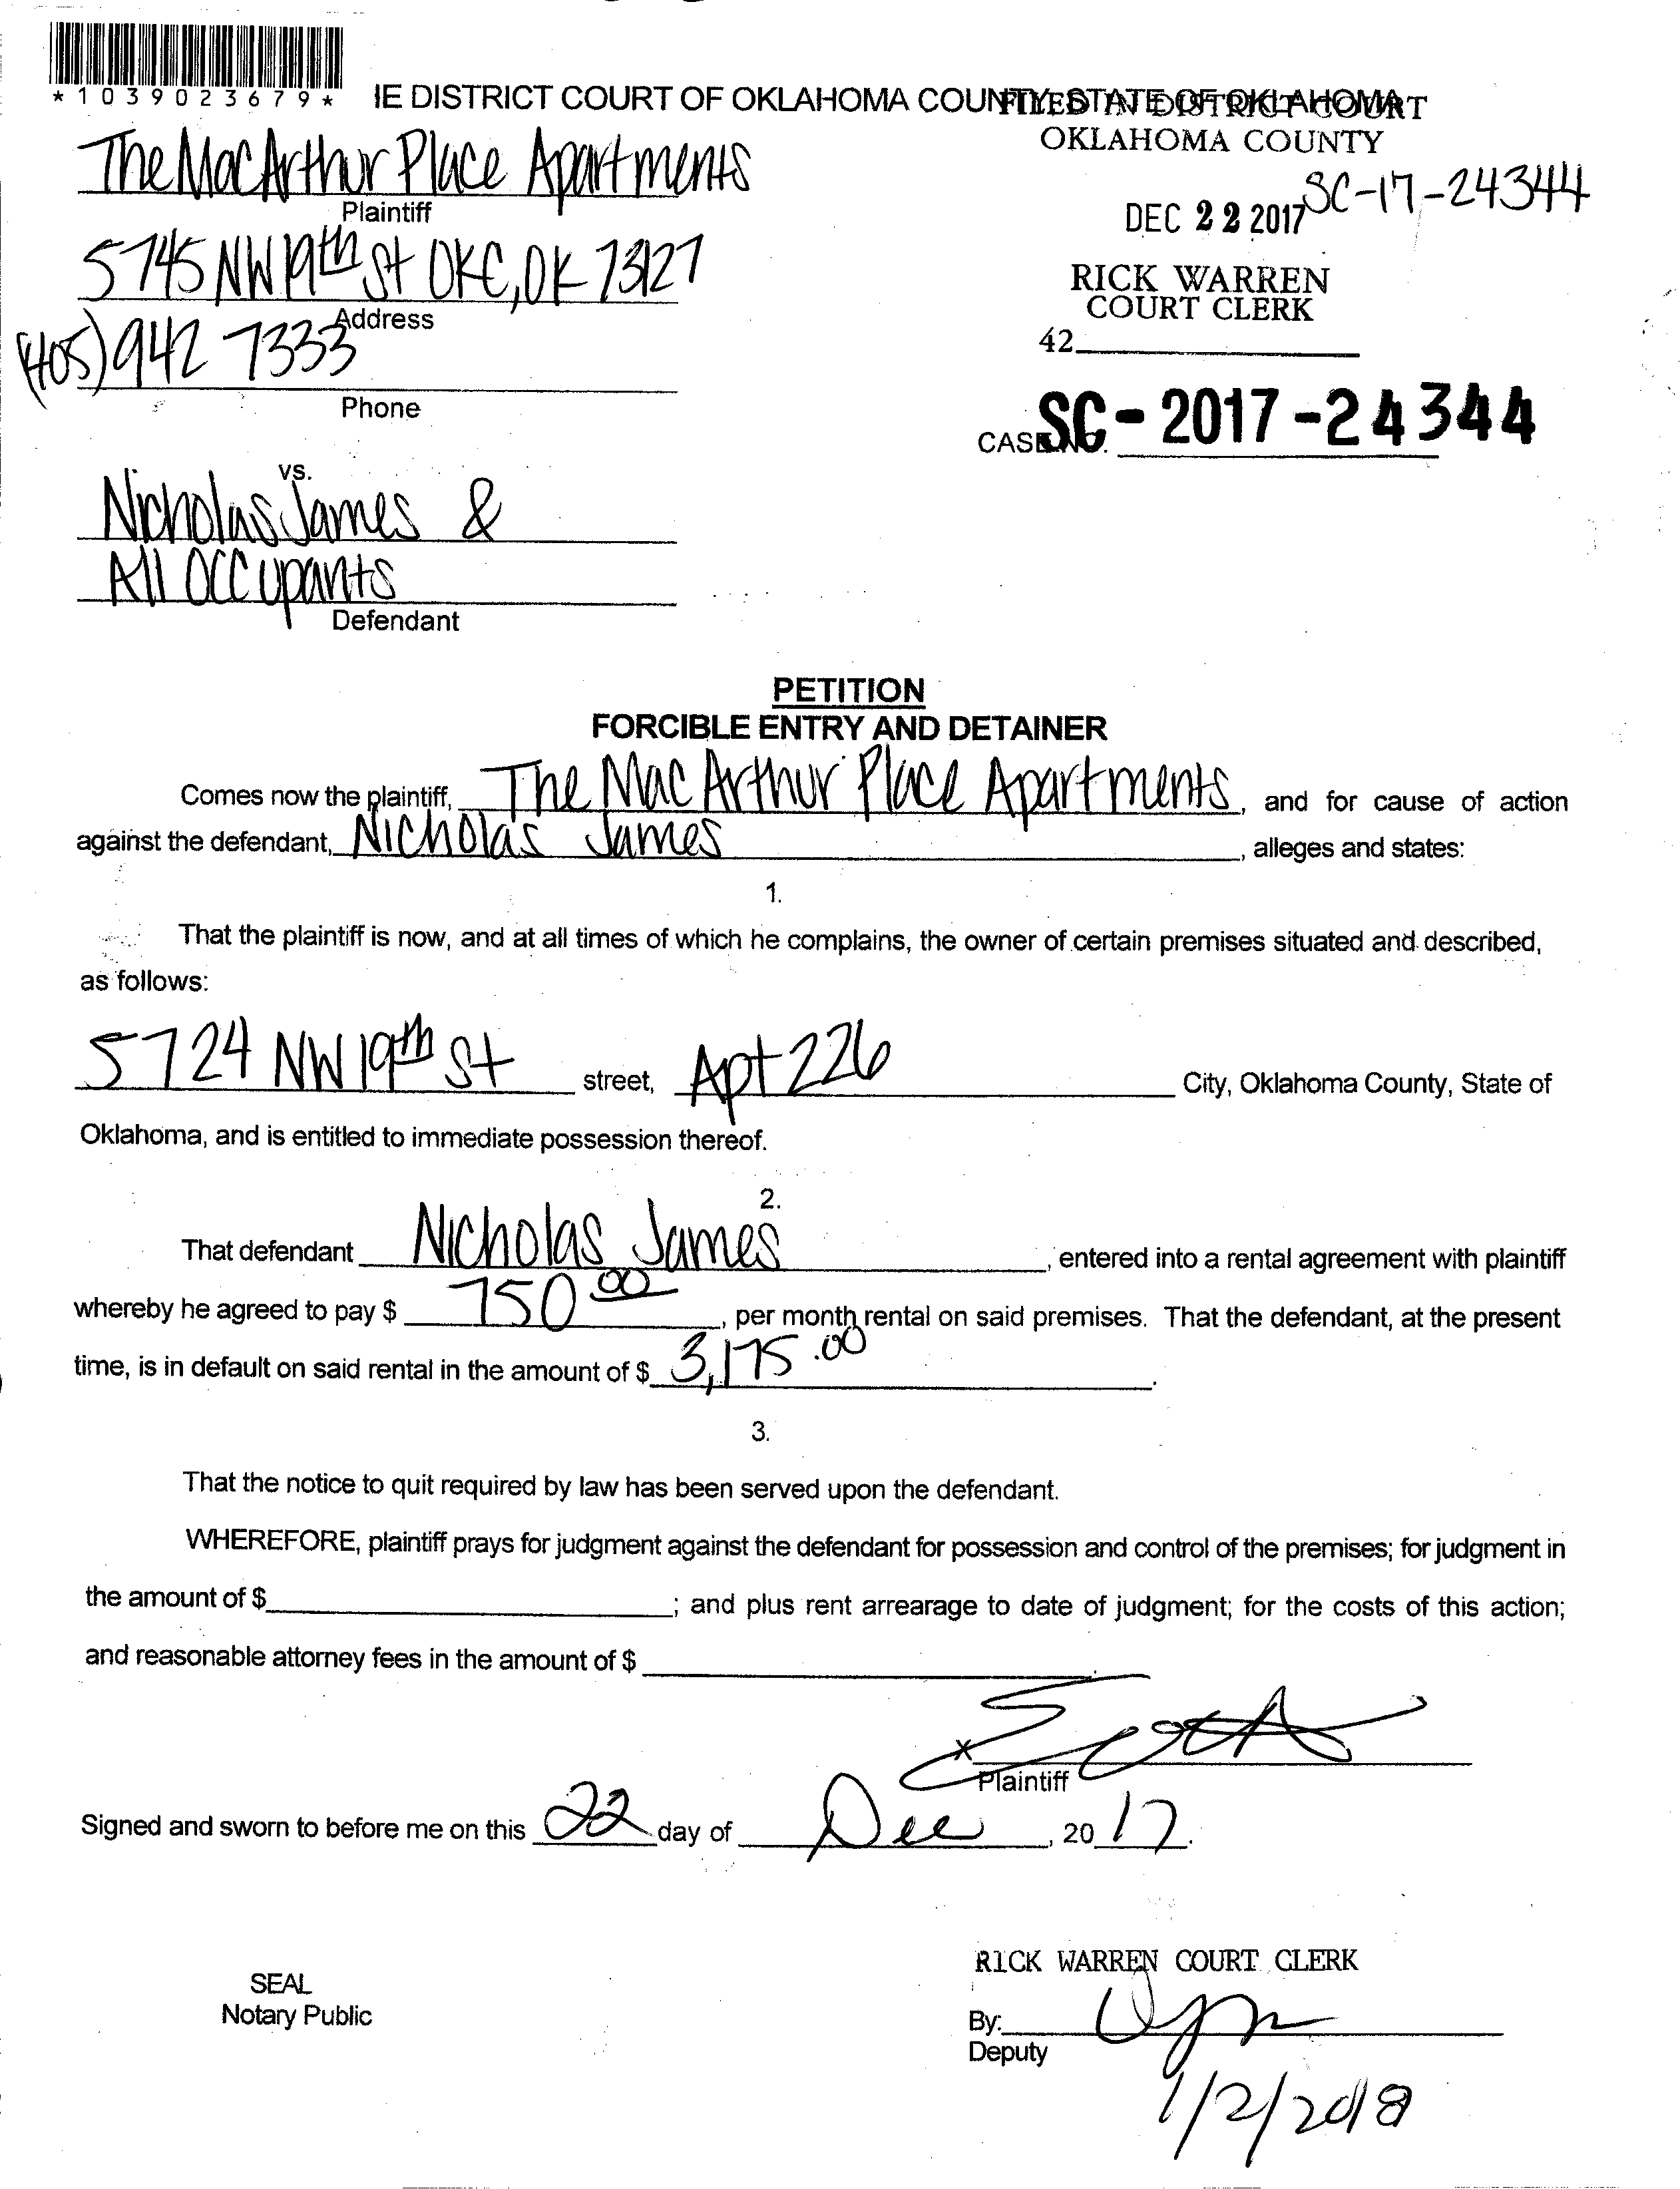 *1039023679*
IE DISTRICT COURT OF OKLAHOMA COUNTY, STATE OF OKLAHOMA
FILED IN DISTRICT COURT
OKLAHOMA COUNTY
The MacArthur Place Apartments
Plaintiff
SC-17-24344
DEC 22 2017
5745 NW 19th St OKC, OK 73127
Address
RICK WARREN
COURT CLERK
(405) 942 7333
Phone
42
CASE NO. SC-2017-24344
vs.
Nicholas James &
All Occupants
Defendant
PETITION
FORCIBLE ENTRY AND DETAINER
Comes now the plaintiff, The MacArthur Place Apartments, and for cause of action
against the defendant, Nicholas James, alleges and states:
1.
That the plaintiff is now, and at all times of which he complains, the owner of certain premises situated and described,
as follows:
5724 NW 19th St street, Apt 226 City, Oklahoma County, State of
Oklahoma, and is entitled to immediate possession thereof.
2.
That defendant Nicholas James, entered into a rental agreement with plaintiff
whereby he agreed to pay $ 750.00, per month rental on said premises. That the defendant, at the present
time, is in default on said rental in the amount of $ 3,175.00.
3.
That the notice to quit required by law has been served upon the defendant.
WHEREFORE, plaintiff prays for judgment against the defendant for possession and control of the premises; for judgment in
the amount of $; and plus rent arrearage to date of judgment; for the costs of this action;
and reasonable attorney fees in the amount of $
x
Plaintiff
Signed and sworn to before me on this 22 day of Dec, 2017.
RICK WARREN COURT CLERK
SEAL
Notary Public
By:
Deputy
1/2/2018